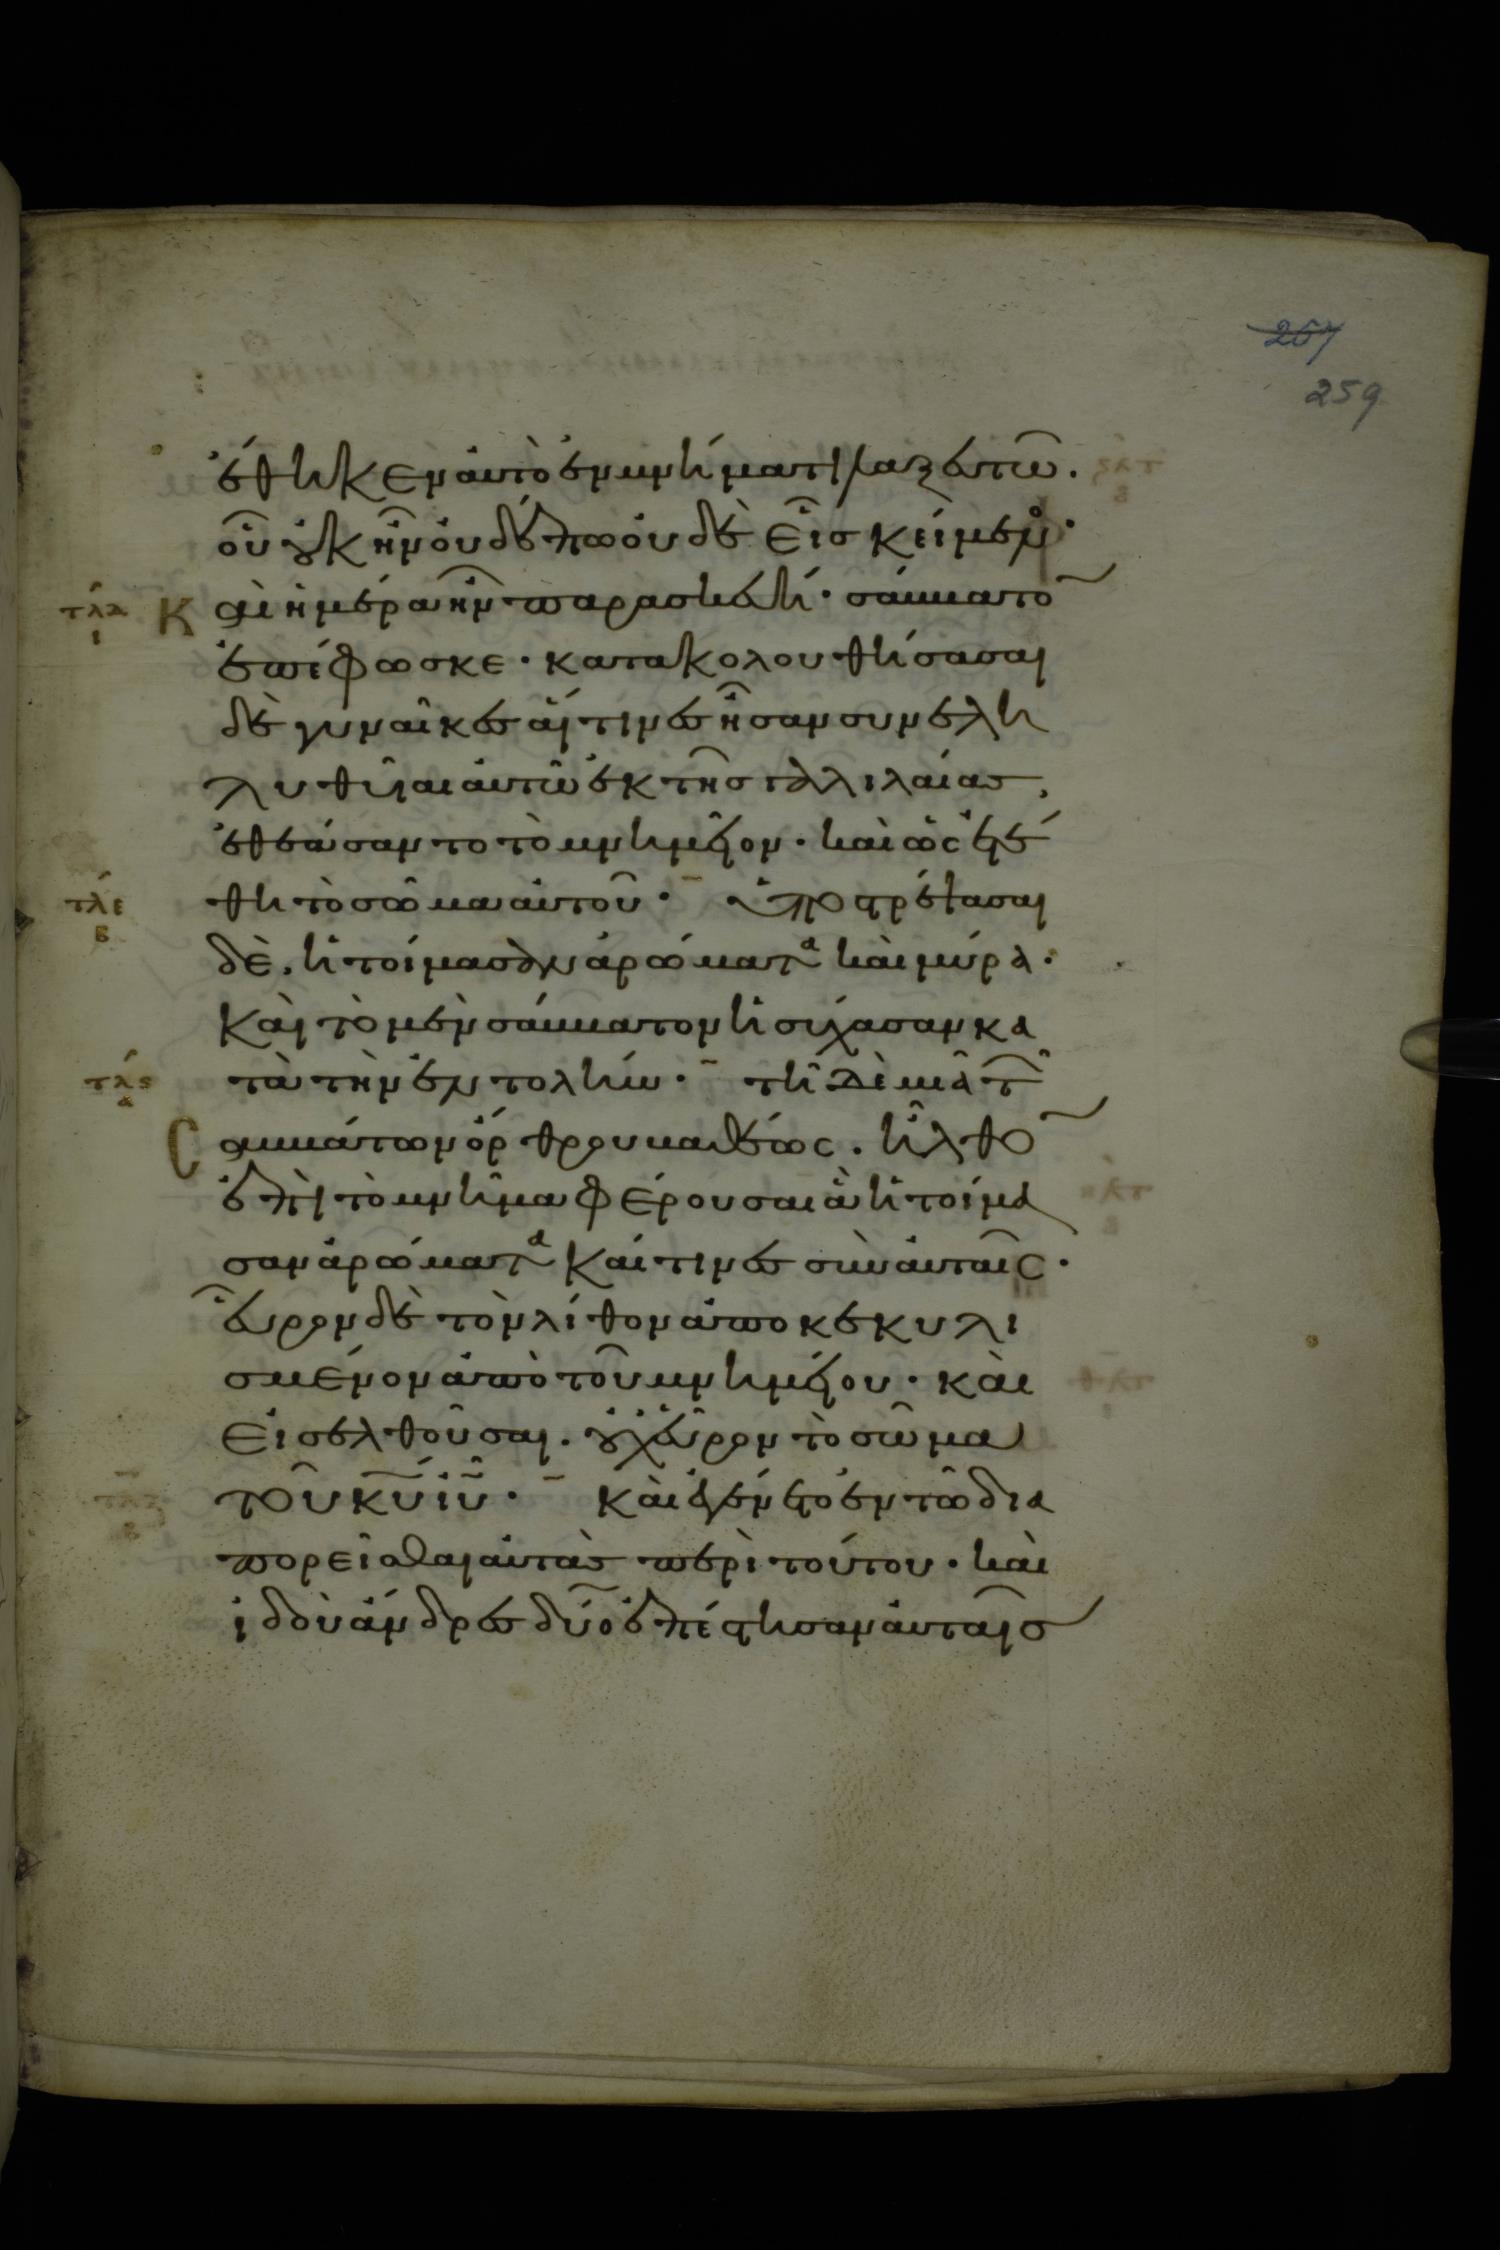 267
259
ἔθηκεν αὐτὸ ἐν μνήματι λαξευτῶ.
οὗ οὐκ ἦν οὐδέπω οὐδεὶς κείμενο·
τλδ ι Καὶ ἡμέρα ἦν παρασκευή· σάββατο
ἐπέφωσκε· κατακολουθήσασαι
δὲ γυναῖκες αἵτινες ἦσαν συνελη
λυθυῖαι αὐτῶ ἐκ τῆς γαλιλαίας,
ἐθεάσαντο τὸ μνημεῖον· καὶ ὡς ἐτέ
τλε β θη τὸ σῶμα αὐτοῦ· ὑποστρέψασαι
δὲ, ἡτοίμασαν ἀρώματα καὶ μύρα·
Καὶ τὸ μὲν σάββατον ἡσύχασαν κα
τλϛ α τὰ τὴν ἐντολήν· τῆ δὲ μιᾶ τῶ
Σαββάτων ὄρθρου βαθέως. ἦλθο
ἐπὶ τὸ μνῆμα φέρουσαι ἃ ἡτοίμα
σαν ἀρώματα καί τινες σὺν αὐταῖς·
εὗρον δὲ τὸν λίθον ἀποκεκυλι
σμένον ἀπὸ τοῦ μνημείου· καὶ
εἰσελθοῦσαι. οὐχ εὗρον τὸ σῶμα
τοῦ κ̅υ̅ ι̅υ̅· καὶ ἐγένετο ἐν τῶ δια
πορεῖσθαι αὐτὰς περὶ τούτου· καὶ
ἰδοὺ ἄνδρες δύο ἐπέστησαν αὐταῖς